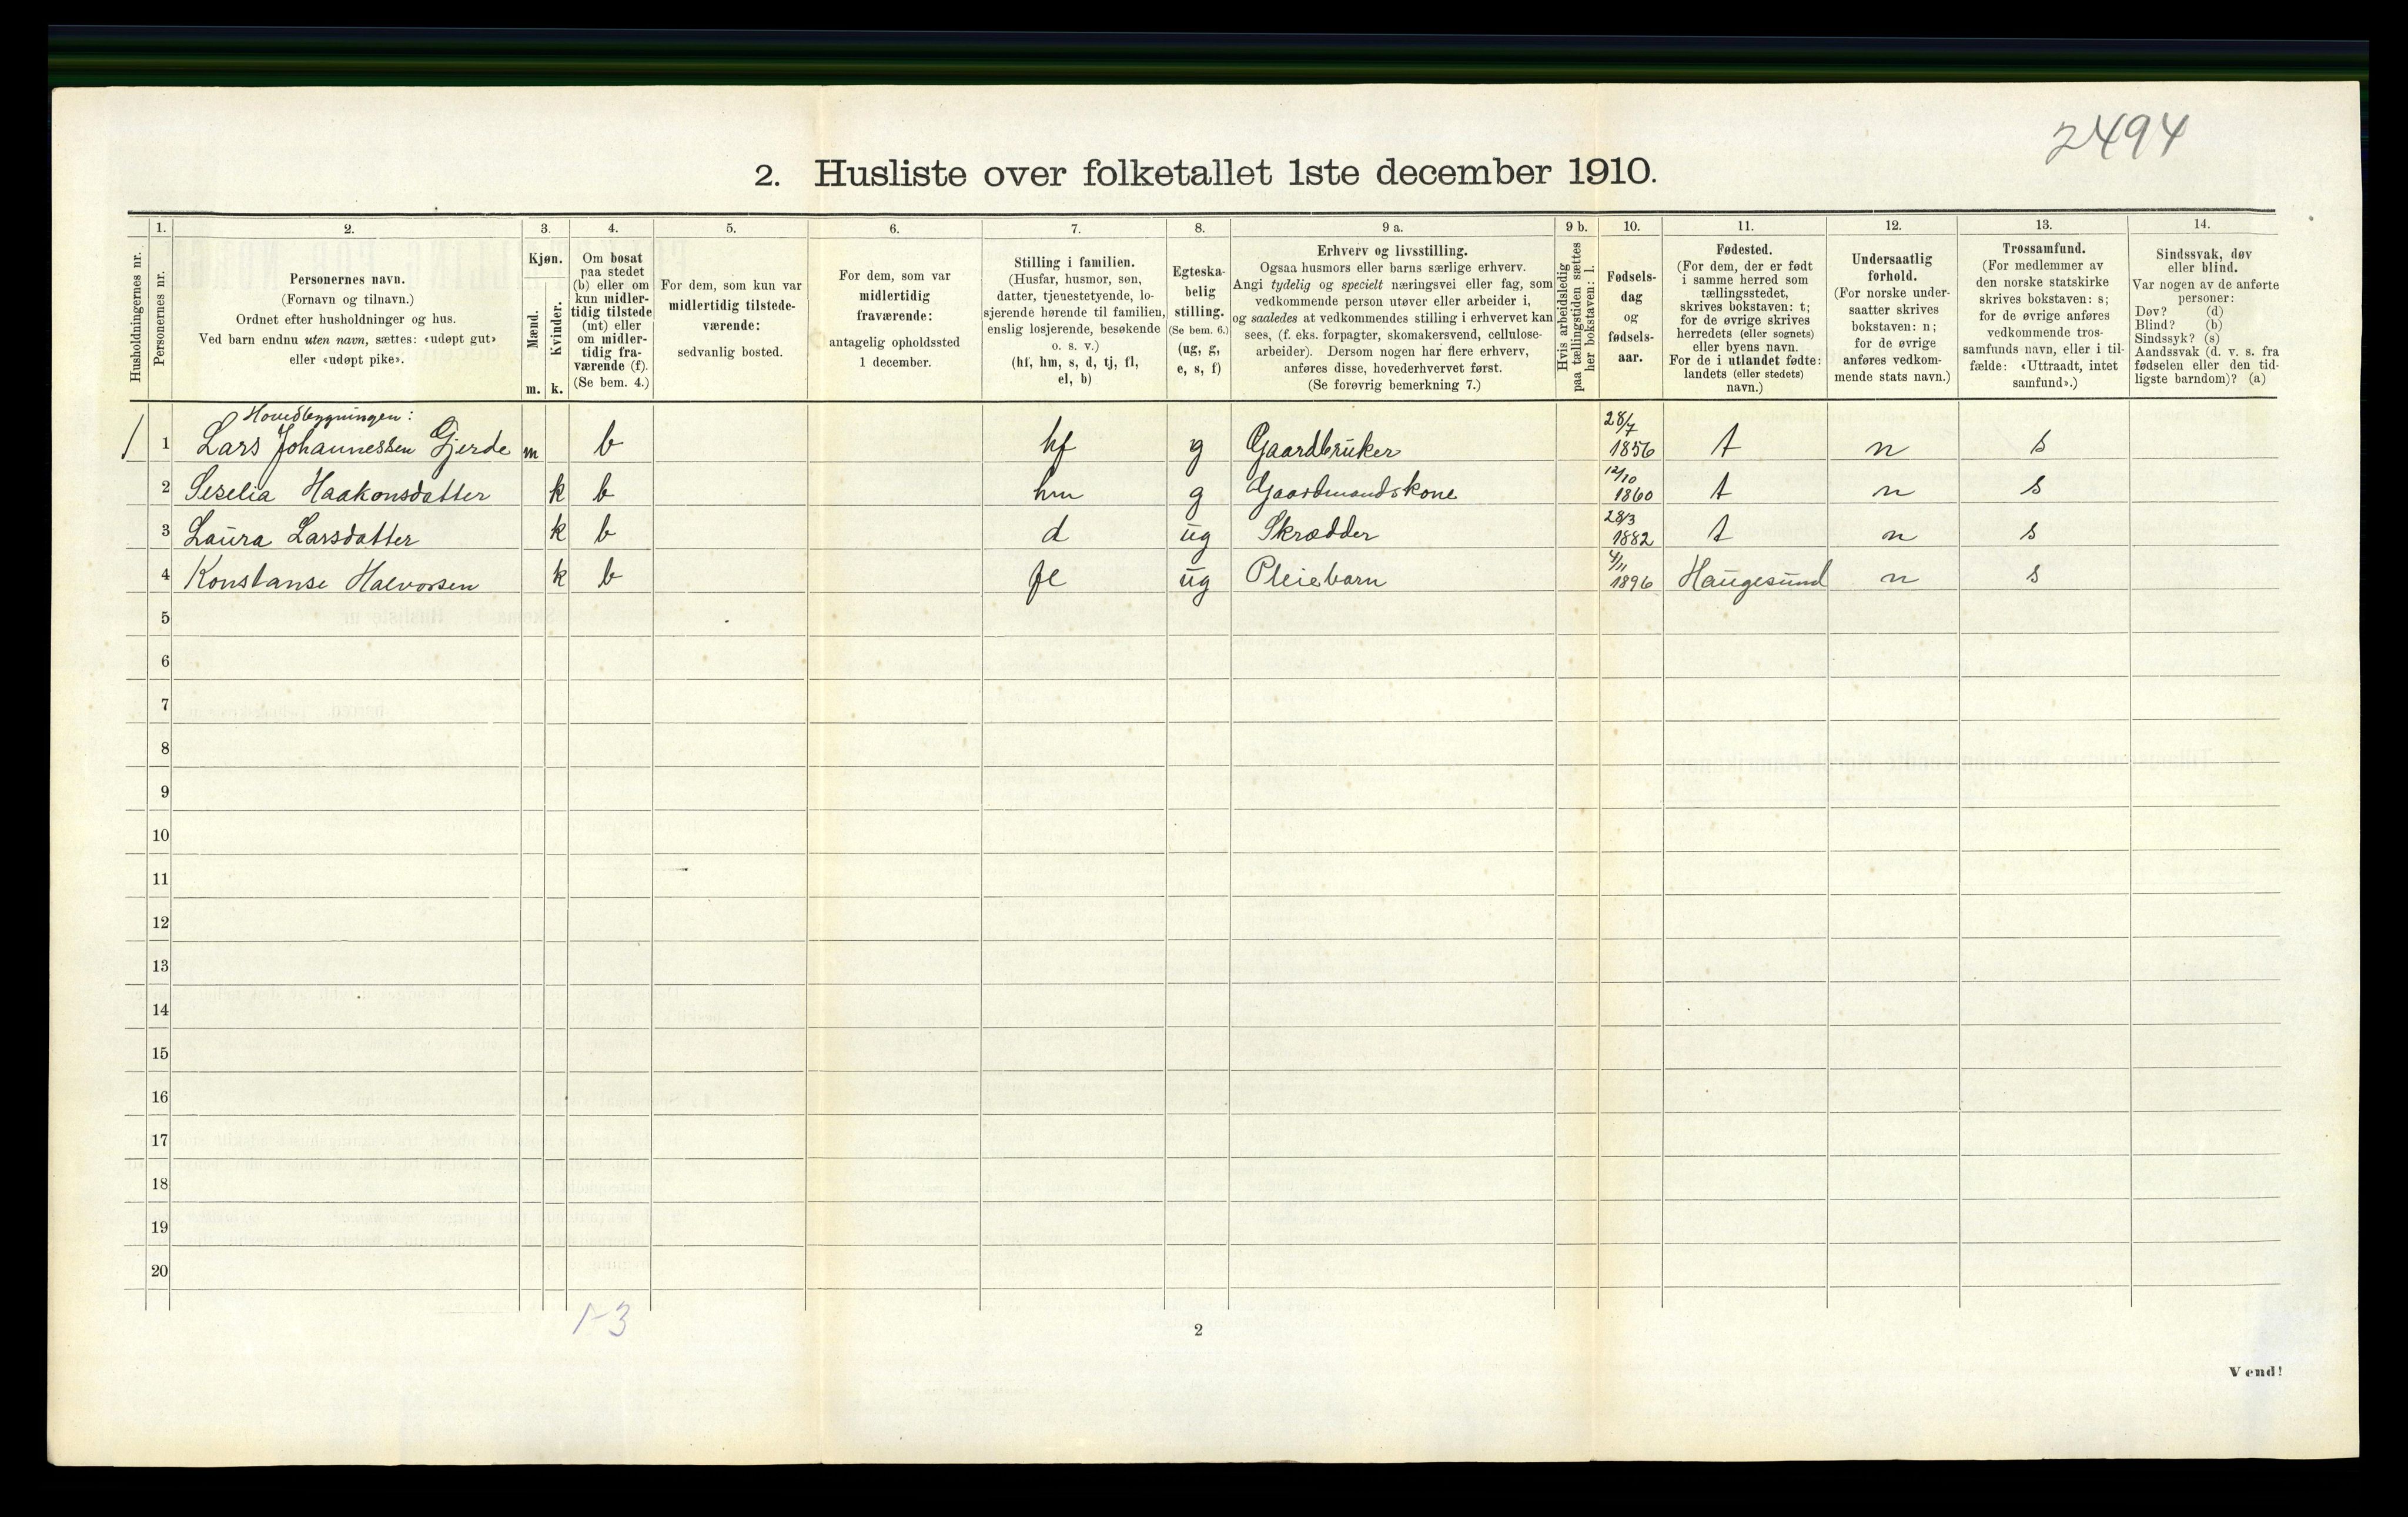 2494
2. Husliste over folketallet 1ste december 1910.
Husholdningernes nr.
1.
Personernes nr.
2.
Personernes navn.
(Fornavn og tilnavn.)
Ordnet efter husholdninger og hus.
Ved barn endnu uten navn, sættes: «udøpt gut»
eller «udøpt pike».
3.
Kjøn.
Mænd.
Kvinder.
m. k.
4.
Om bosat
paa stedet
(b) eller om
kun midler-
tidig tilstede
(mt) eller
om midler-
tidig fra-
værende (f).
(Se bem. 4.)
5.
For dem, som kun var
midlertidig tilstede-
værende:
sedvanlig bosted.
6.
For dem, som var
midlertidig
fraværende:
antagelig opholdssted
1 december.
7.
Stilling i familien.
(Husfar, husmor, søn,
datter, tjenestetyende, lo-
sjerende hørende til familien,
enslig losjerende, besøkende
o. s. v.)
(hf, hm, s, d, tj, fl,
el, b)
8.
Egteska-
belig
stilling.
(Se bem. 6.)
(ug, g,
e, s, f)
9 a.
Erhverv og livsstilling.
Ogsaa husmors eller barns særlige erhverv.
Angi tydelig og specielt næringsvei eller fag, som
vedkommende person utøver eller arbeider i,
og saaledes at vedkommendes stilling i erhvervet kan
sees, (f. eks. forpagter, skomakersvend, cellulose-
arbeider). Dersom nogen har flere erhverv,
anføres disse, hovederhvervet først.
(Se forøvrig bemerkning 7.)
9 b.
Hvis arbeidsledig
paa tællingstiden sættes
her bokstaven: l.
10.
Fødsels-
dag
og
fødsels-
aar.
11.
Fødested.
(For dem, der er født
i samme herred som
tællingsstedet,
skrives bokstaven: t;
for de øvrige skrives
herredets (eller sognets)
eller byens navn.
For de i utlandet fødte:
landets (eller stedets)
navn.)
12.
Undersaatlig
forhold.
(For norske under-
saatter skrives
bokstaven: n;
for de øvrige
anføres vedkom-
mende stats navn.)
13.
Trossamfund.
(For medlemmer av
den norske statskirke
skrives bokstaven: s;
for de øvrige anføres
vedkommende tros-
samfunds navn, eller i til-
fælde: «Uttraadt, intet
samfund».)
14.
Sindssvak, døv
eller blind.
Var nogen av de anførte
personer:
Døv? (d)
Blind? (b)
Sindssyk? (s)
Aandssvak (d. v. s. fra
fødselen eller den tid-
ligste barndom)? (a)
Hovedbygningen:
1 1 Lars Johannessen Gjerde m b hf g Gaardbruker 28/7 1856 t n s
2 Seselia Haakonsdatter k b hm g Gaardmandskone 12/10 1860 t n s
3 Laura Larsdatter k b d ug Skrædder 28/3 1882 t n s
4 Konstanse Halvorsen k b fl ug Pleiebarn 4/11 1896 Haugesund n s
5
6
7
8
9
10
11
12
13
14
15
16
17
18
19
20
1-3
2
Vend!